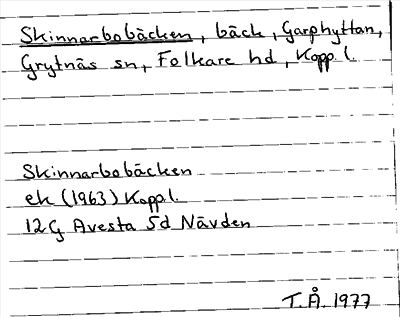 Skinnarbobäcken, bäck, Garphyttan,
Grytnäs sn, Folkare hd, Kopp. l.
Skinnarbobäcken
ek (1963) Kopp l.
12G Avesta 5d Nävden
T.Å. 1977